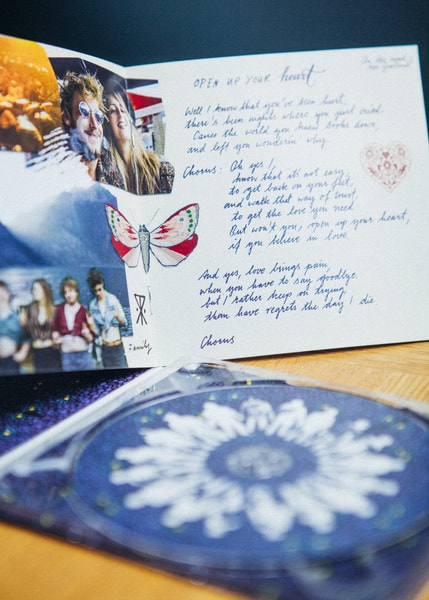 OPEN UP YOUR heart
Well I know that you've been hurt,
there's been nights where you just cried.
'Cause the world you knew broke down
and left you wonderin' why.
Chorus: Oh yes I,
know that it's not easy,
to get back on your feet,
and walk that way of trust,
to get the love you need
But won't you, open up your heart,
if you believe in love.
And yes, love brings pain,
when you have to say goodbye.
but I rather keep on trying
than have regrets the day I die
Chorus
Family